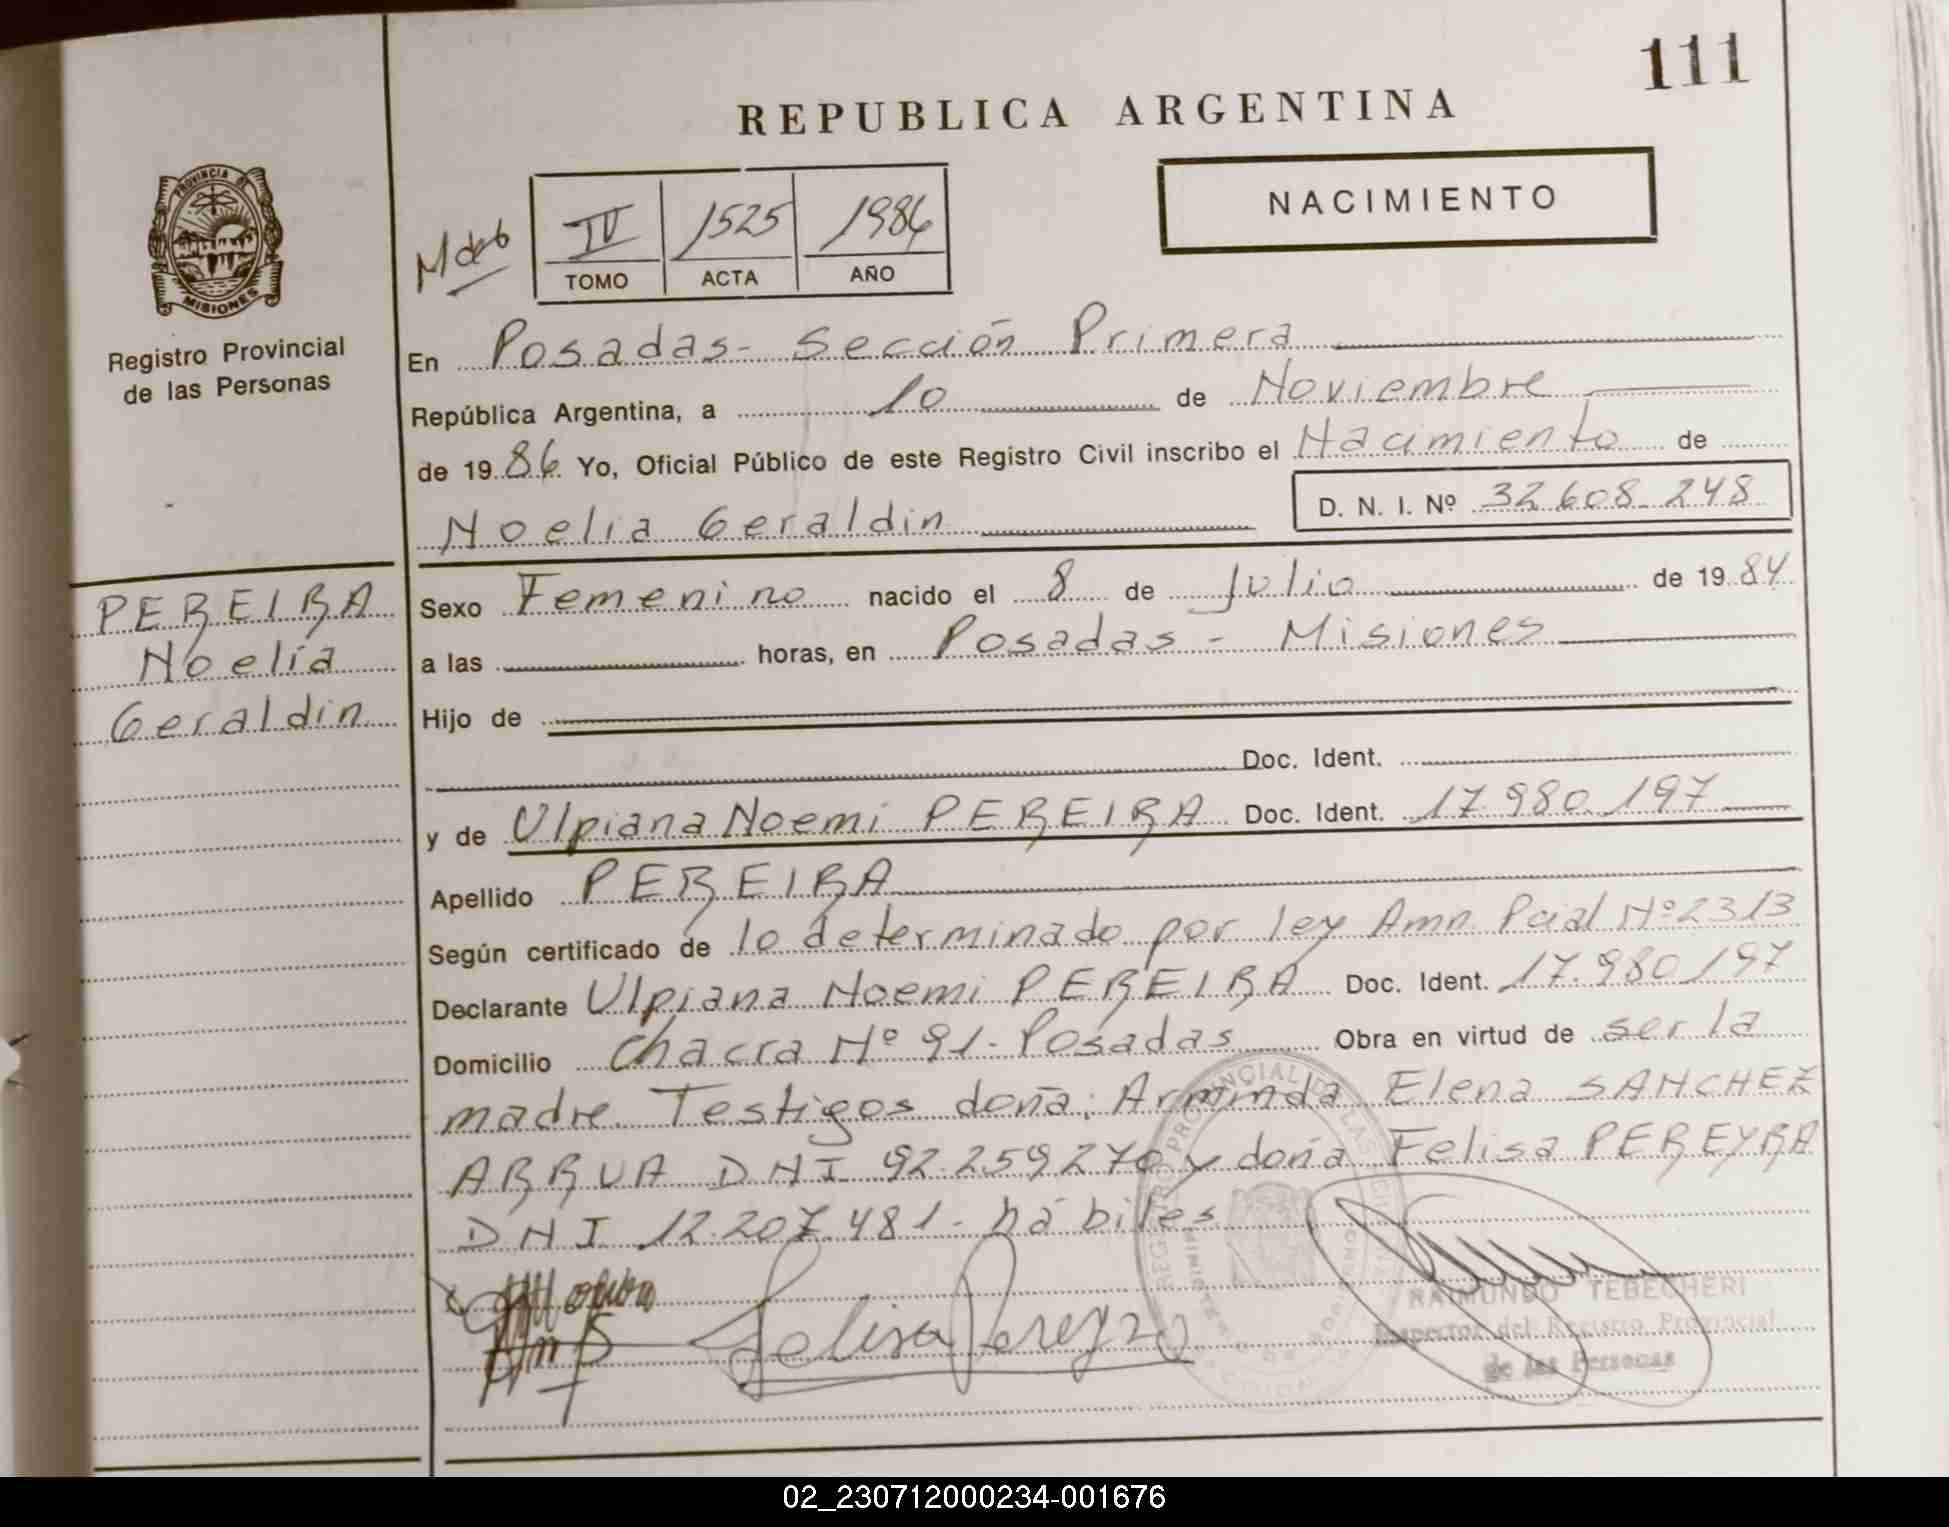 111
REPUBLICA ARGENTINA
PROVINCIA DE
MISIONES
Registro Provincial
de las Personas
NACIMIENTO
IV 1525 1986
TOMO ACTA AÑO
En Posadas - Sección Primera
República Argentina, a 10 de Noviembre
de 1986 Yo, Oficial Público de este Registro Civil inscribo el Nacimiento de
Noelia Geraldin D. N. I. Nº 32.608.248
PEREIRA
Noelia
Geraldin
Sexo Femenino nacido el 8 de Julio de 1984
a las horas, en Posadas - Misiones
Hijo de
Doc. Ident.
y de Ulpiana Noemi PEREIRA Doc. Ident. 17.980.197
Apellido PEREIRA
Según certificado de lo determinado por ley Amn. Pcial Nº 2313
Declarante Ulpiana Noemi PEREIRA Doc. Ident. 17.980.197
Domicilio Chacra Nº 91 - Posadas Obra en virtud de ser la
madre. Testigos doña: Arminda Elena SANCHEZ
ARRUA DNI 92.259.270 y doña Felisa PEREYRA
DNI 12.207.481 - hábiles
Felisa Pereyra
RAIMUNDO TEBECHERI
Inspector del Registro Provincial
de las Personas
02_230712000234-001676